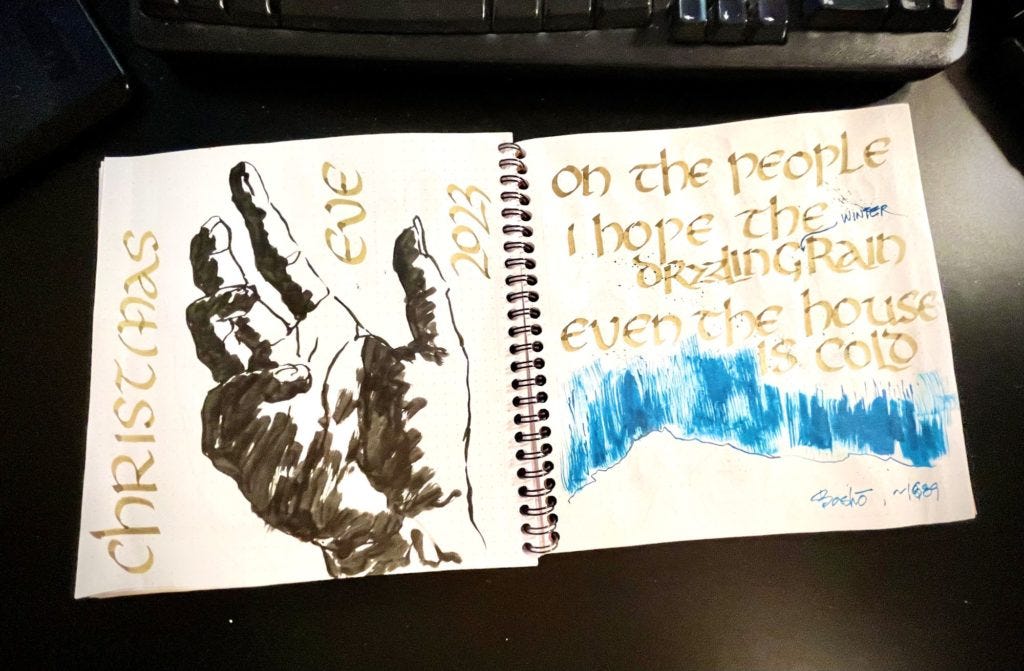 CHRISTMAS
EVE
2023
ON THE PEOPLE
I HOPE THE
WINTER
DRIZZLING RAIN
EVEN THE HOUSE
IS COLD
Bashō, ~1689